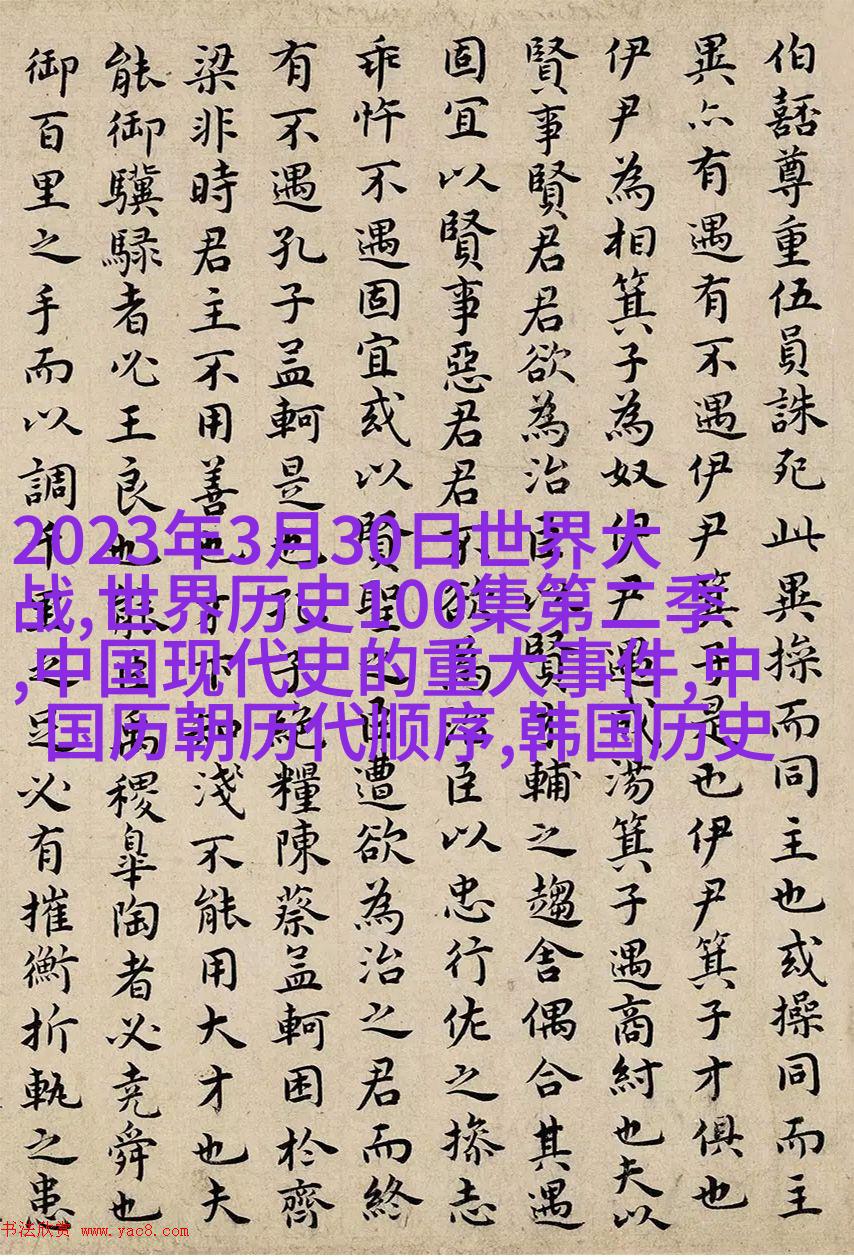 伯嚭尊重伍員誅死此異操而同主也或操同而主
異亦有遇有不遇伊尹箕子是也伊尹箕子才俱也
伊尹為相箕子為奴伊尹遇成湯箕子遇商紂也夫以
賢事賢君君欲為治臣以賢才輔之趨舍偶合其遇
固宜以賢事惡君君不欲為治臣以忠行佐之操志
乖忤不遇固宜或以賢聖之臣遭欲為治之君而終
有不遇孔子孟軻是也孔子絕糧陳蔡孟軻困於齊
梁非時君主不用善也才下知淺不能用大才也夫
能御驥騄者必王良也能臣禹稷皋陶者必堯舜也
御百里之手而以調千里之足必有摧衡折軛之患
2023年3月30日世界大
战,世界历史100集第二季
,中国现代史的重大事件,中
国历朝历代顺序,韩国历史
书法欣赏 www.yac8.com